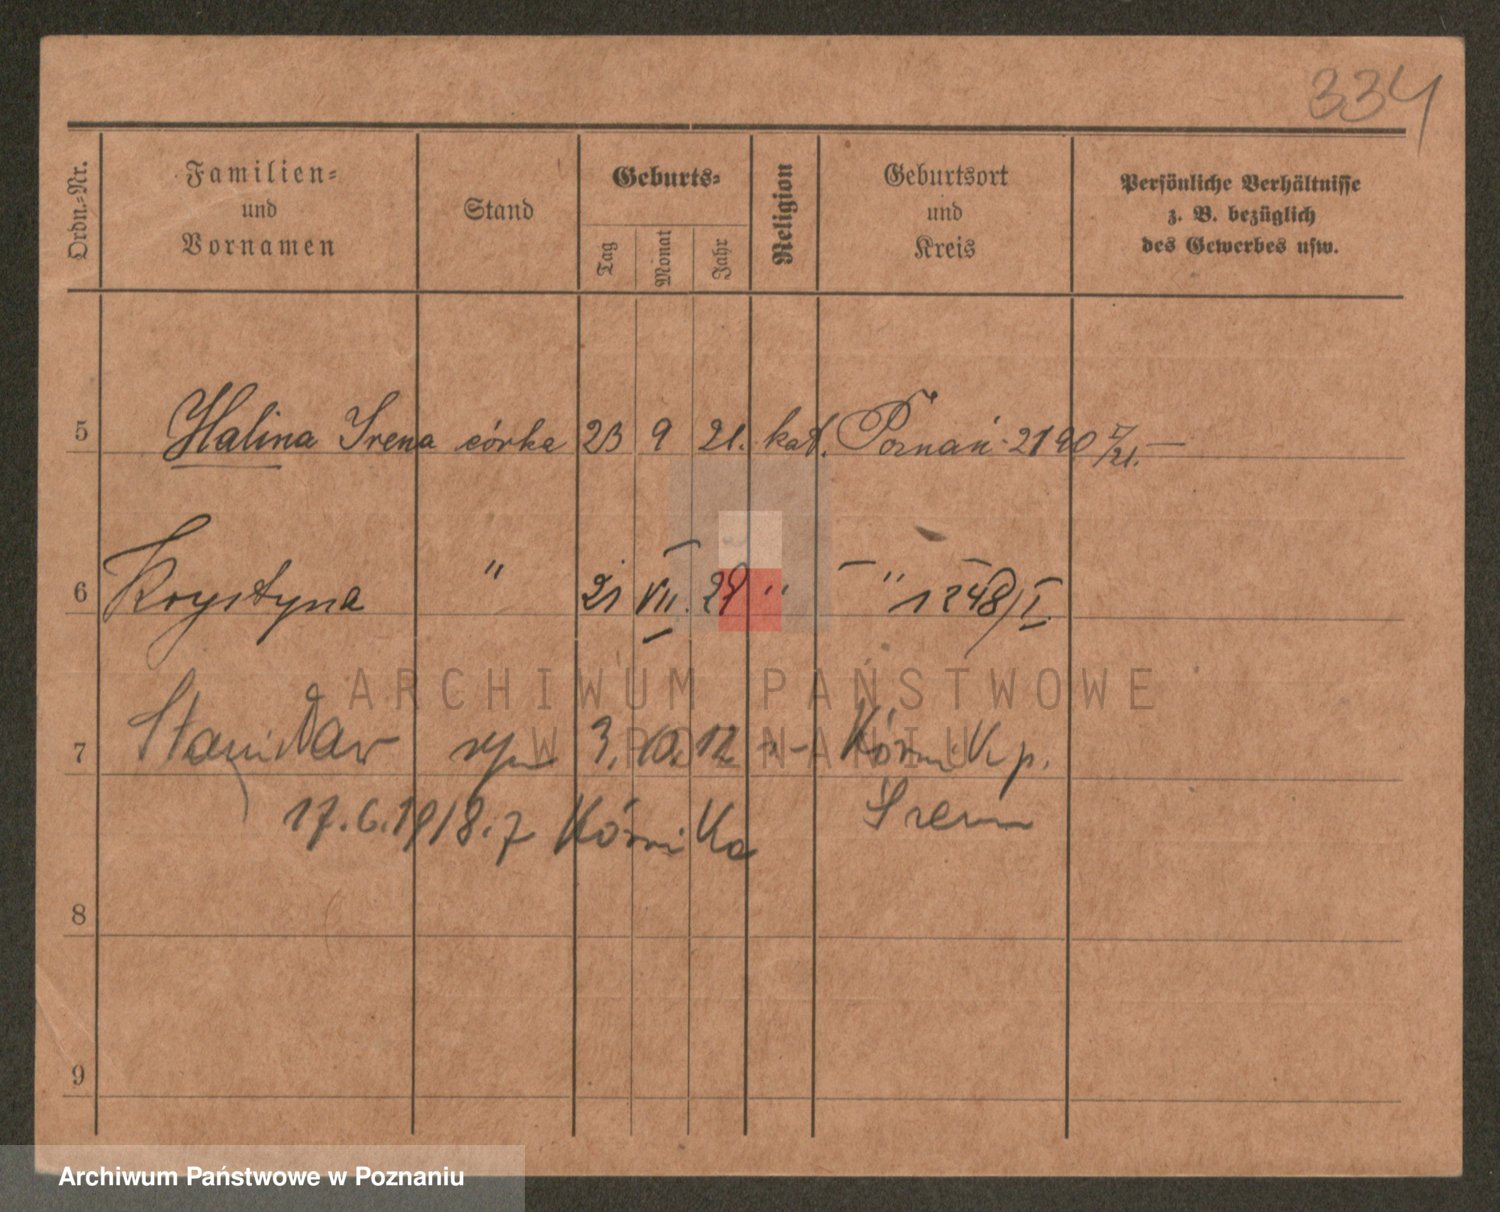 334
Ordn.-Nr.
Familien-
und
Vornamen
Stand
Geburts-
Tag
Monat
Jahr
Religion
Geburtsort
und
Kreis
Persönliche Verhältnisse
z. B. bezüglich
des Gewerbes usw.
5 Halina Irena córka 23 9 21. kat. Poznań 2190 /21. —
6 Krystyna " 21 VII. " — " 1248/I.
ARCHIWUM PAŃSTWOWE
W POZNANIU
7 Stanisław syn 3. 10. 12 - " - Kórnik p.
Śrem
17.6.1918. z Kórnika
8
9
Archiwum Państwowe w Poznaniu